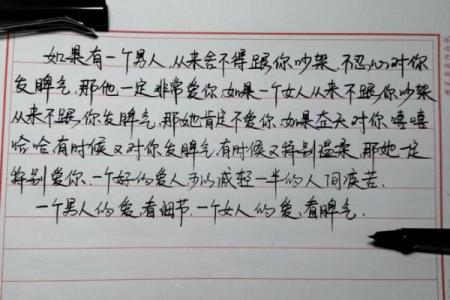 如果有一个男人,从来舍不得跟你吵架,不忍心对你
发脾气,那他一定非常爱你,如果一个女人从来不跟你吵架
从来不跟你发脾气,那她肯定不爱你.如果在天对你嘻嘻
哈哈有时候又对你发脾气,有时候又特别温柔,那她一定
特别爱你.一个好的爱人可以减轻一半的人间疾苦.
一个男人的爱,看细节.一个女人的爱,看脾气.